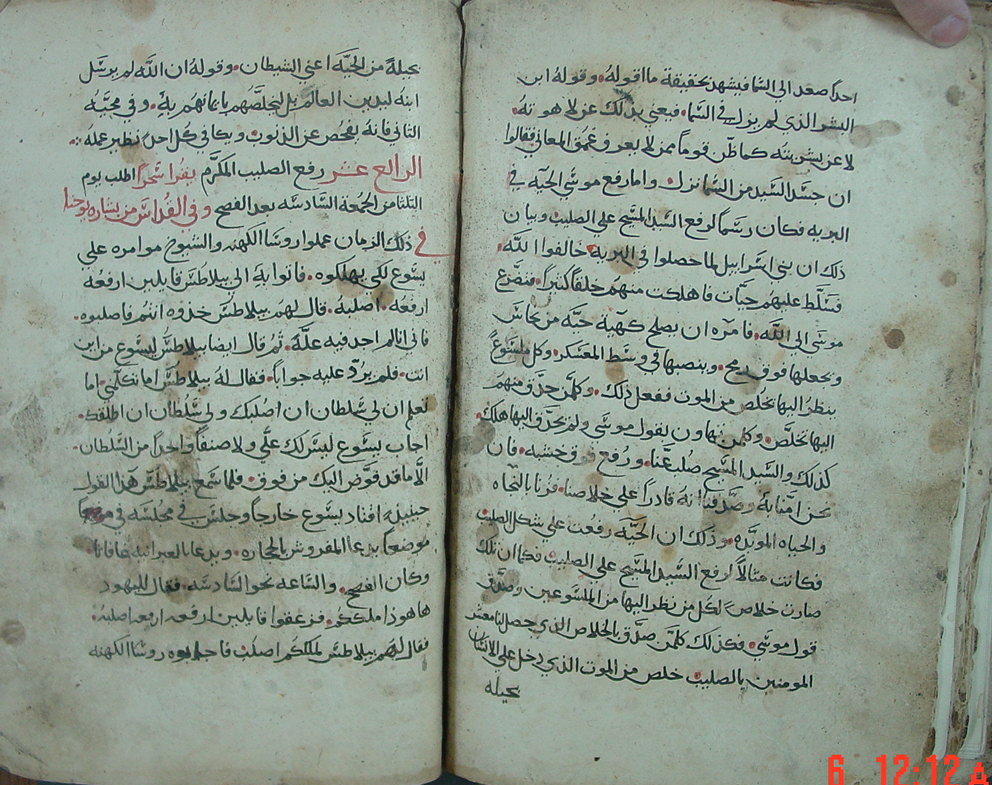 احدًا صعد الي السما فيشهد بحقيقة ما اقوله. وقوله ابن
البشر الذي لم يزل في السما. فيعني بذلك عن لاهوته.
لا عن بشريته كما ظن قوماً ممن لا يعرفو عمق المعاني فقالوا
ان جسد السيد من السما نزل. واما رفع موسي الحيه في
البريه فكان رسماً لرفع السيد المسيح علي الصليب وبيان
ذلك ان بني اسراييل لما حصلوا في البريه خالفوا الله.
فسلط عليهم حيات فاهلكت منهم خلقاً كثيراً. فتضرع
موسي الي الله. فامره ان يصلح كهيئة حيه من نحاس
ويجعلها فوق رمح. وينصبها في وسط المعسكر. وكل ملسوع
ينظر اليها يخلص من الموت ففعل ذلك. وكلمن حدق منهم
اليها تخلص. وكلمن تهاون بقول موسي ولم يحدق اليها هلك.
كذلك والسيد المسيح صلب عنا. ورفع فوق خشبه. فان
نحن امنا به وصدقنا انه قادراً علي خلاصنا. فزنا بالنجاه
والحياه الموبده. وذلك ان الحيه رفعت علي شكل الصليب
فكانت مثالاً لرفع السيد المسيح علي الصليب. فكما ان تلك
صارت خلاص لكل من نظر اليها من الملسوعين وصدق
قول موسي. فكذلك كلمن صدق بالخلاص الذي حصل لنا معشر
المومنين بالصليب خلص من الموت الذي دخل علي الانسان
بحيله
بحيلة من الحيه اعني الشيطان. وقوله ان الله لم يرسل
ابنه ليدين العالم بل ليخلصهم بايمانهم به. وفي مجيه
الثاني فانه يفحص عن الذنوب ويكافي كل احد نظير عمله
الرابع عشر رفع الصليب المكرم يقرا سحراً اطلب يوم
التلتا من الجمعة السادسه بعد الفصح وفي القداس من بشارة يوحنا
في ذلك الزمان عملوا روسا الكهنه والشيوخ موامره علي
يسوع لكي يهلكوه. فاتوا به الي بيلاطس قايلين ارفعه
ارفعه. اصلبه. قال لهم بيلاطس خذوه انتم فاصلبوه.
فاني انا لم اجد فيه علة. ثم قال ايضا بيلاطس ليسوع من اين
انت. فلم يرد عليه جواباً. فقال له بيلاطس اما تكلمني. اما
تعلم ان لي سلطان ان اصلبك ولي سلطان ان اطلقك.
اجاب يسوع ليس لك علي ولا صنفاً واحداً من السلطان.
الا ما قد فوض اليك من فوق. فلما سمع بيلاطس هذا القول
حينيذ اقتاد يسوع خارجاً وجلس في مجلسه في
موضعاً يدعا المفروش بالحجاره. ويدعا بالعبرانيه غاباثا.
وكان الفصح. والساعه نحو السادسه. فقال لليهود
هاهوذا ملككم. فزعقوا قايلين ارفعه ارفعه اصلبه.
فقال لهم بيلاطس لملككم اصلب فاجابوه روسا الكهنه
6 12:12 A